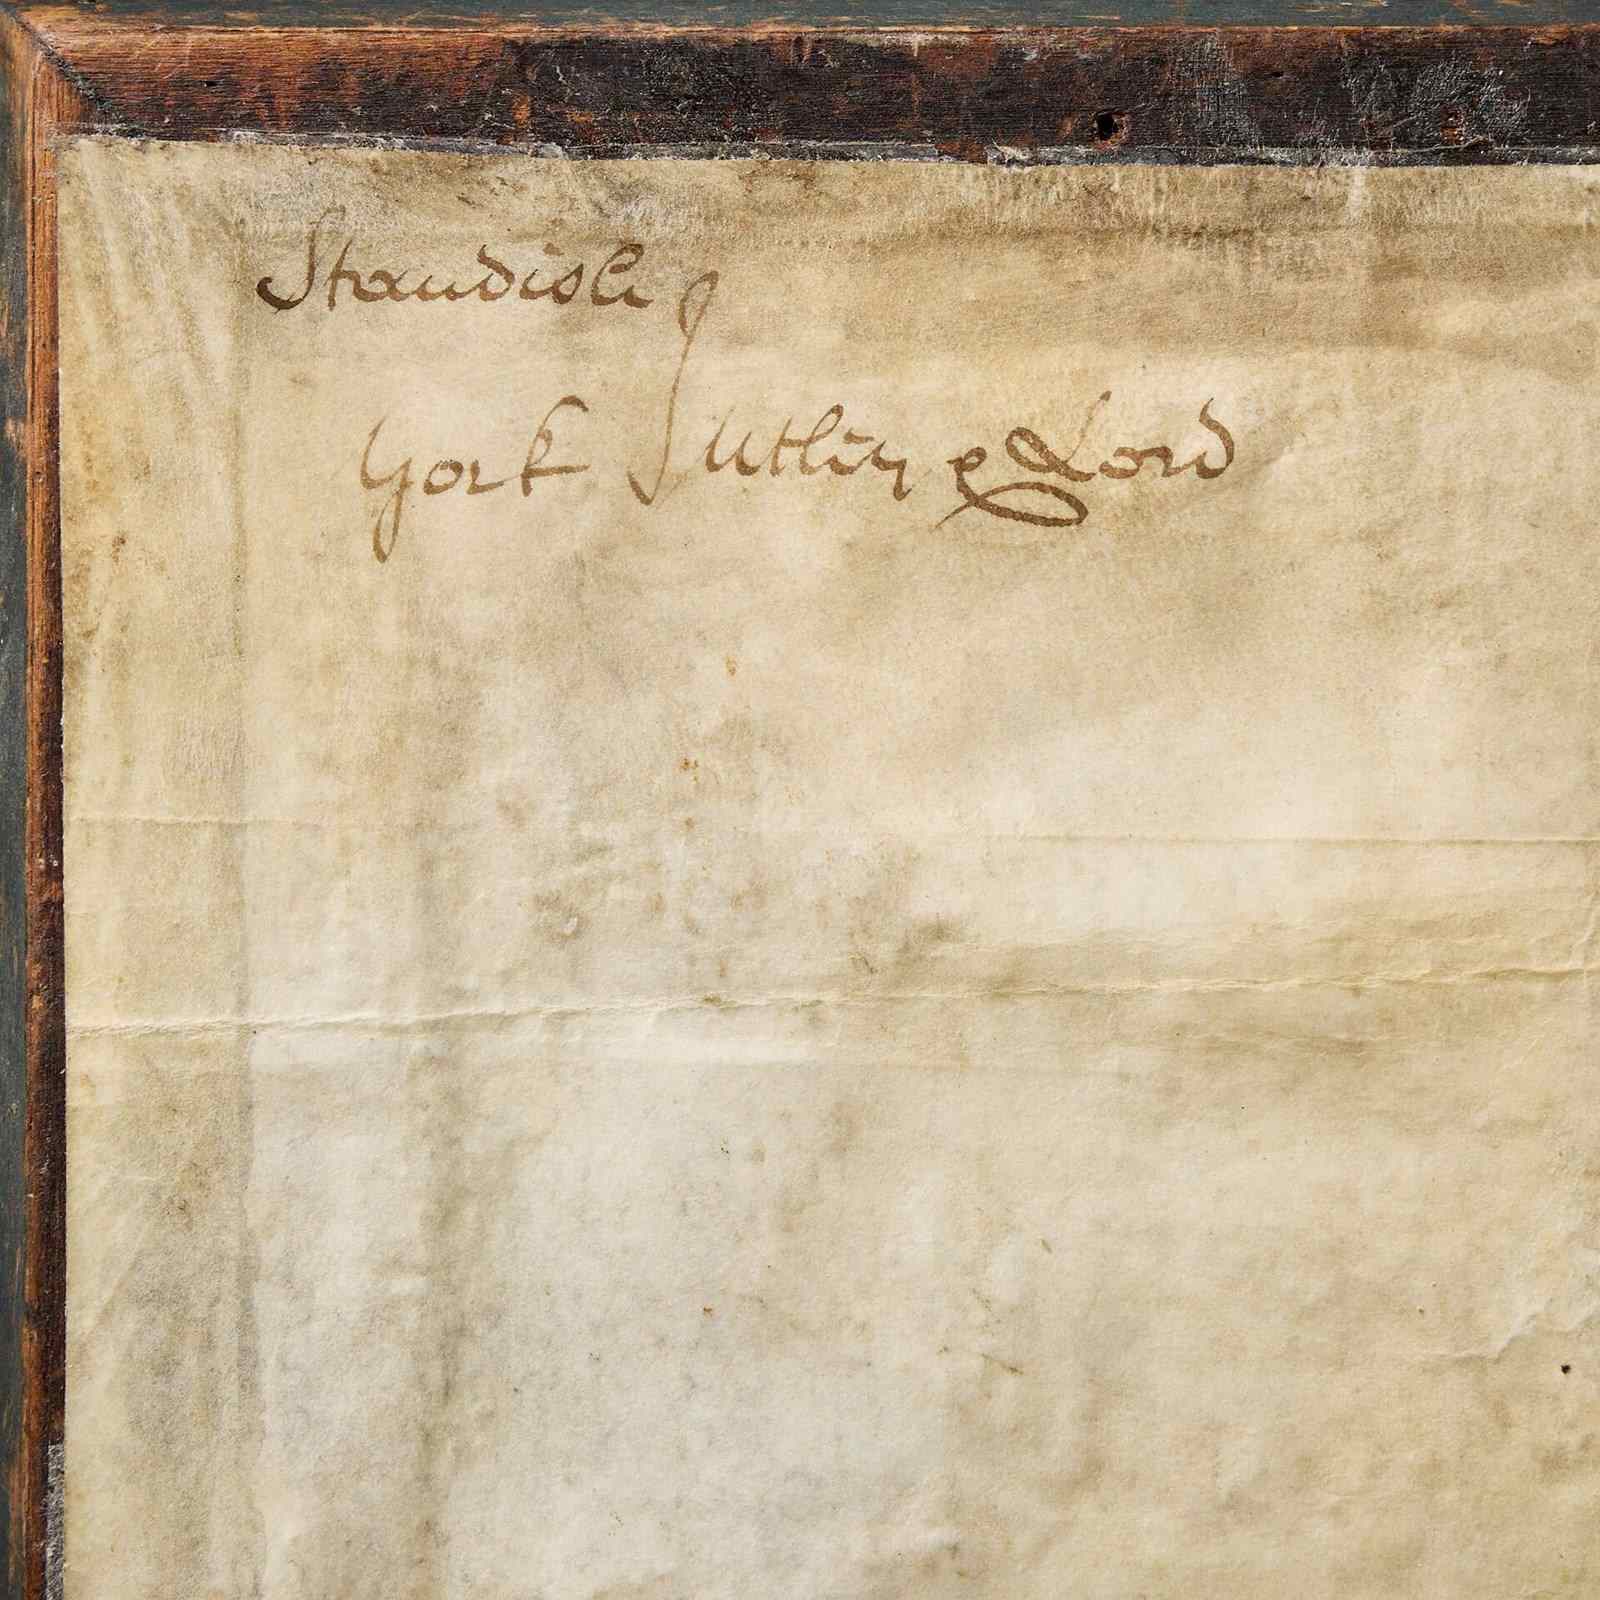 Standish
York Sutlin & Lord